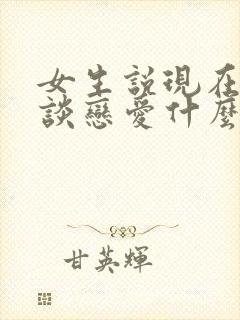 女生説現在
談戀愛什麼
甘英輝